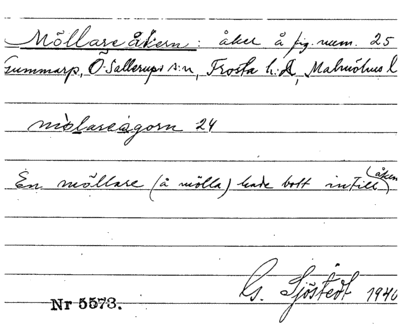 Möllareåkern: åker å fig. num. 25
Gummarp, Ö. Sallerups s:n, Frosta h:d, Malmöhus l
mölareagorn 24
En möllare (å mölla) hade bott intill (åkern
Nr 5573. G. Sjöstedt 1946